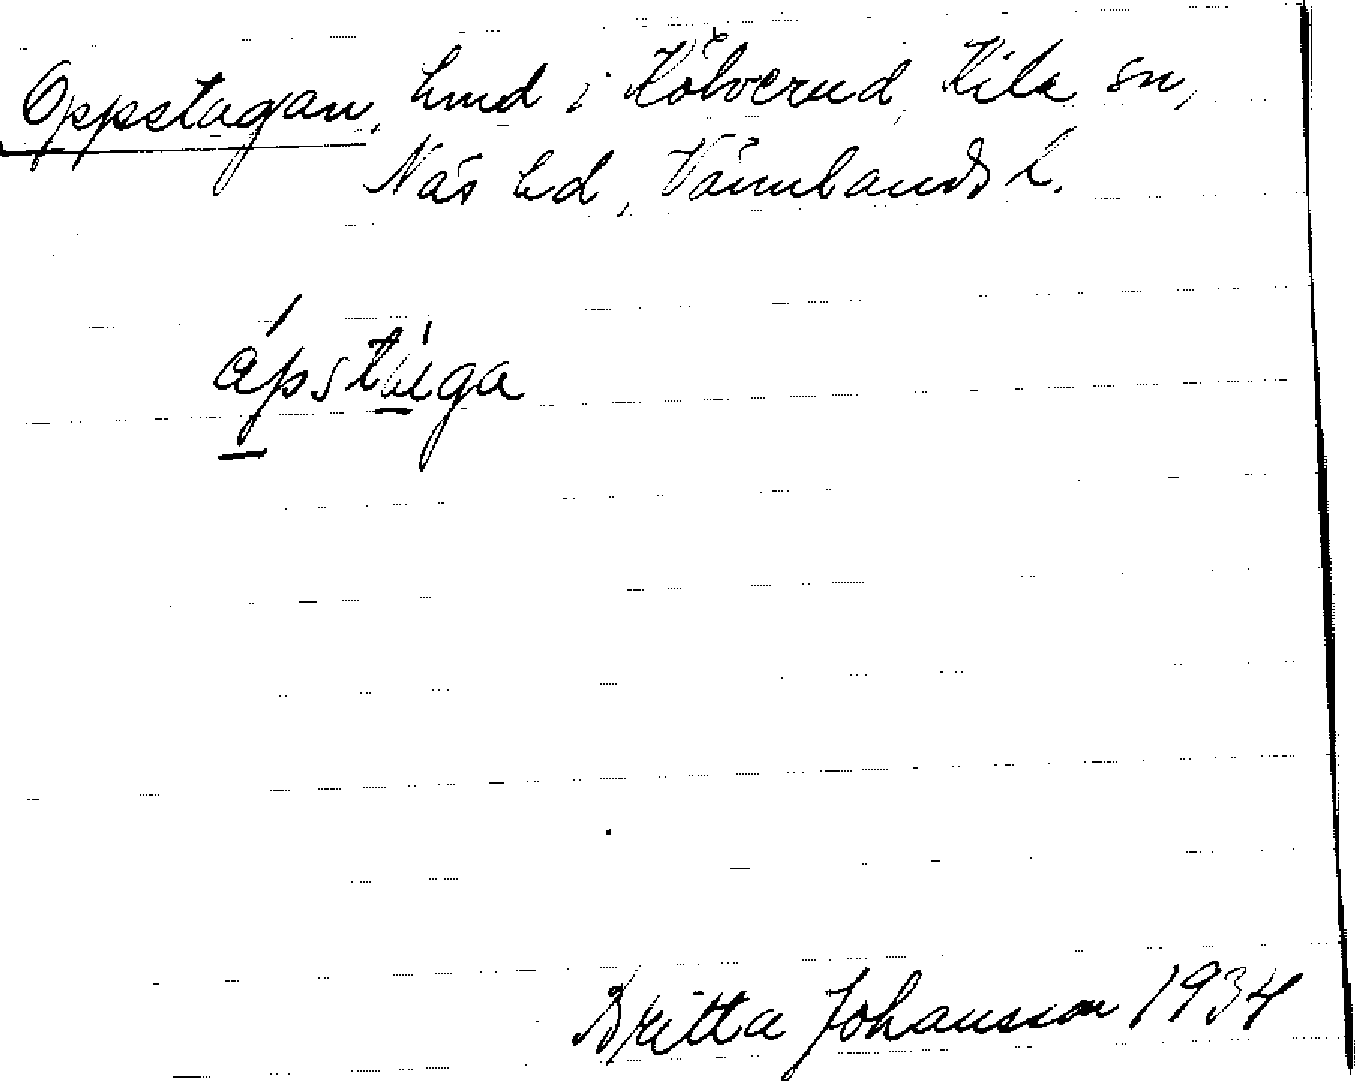 Oppstagan, hmd i Kölverud, Kila sn,
Näs hd, Värmlands l.
åpstaga
Britta Johansson 1934